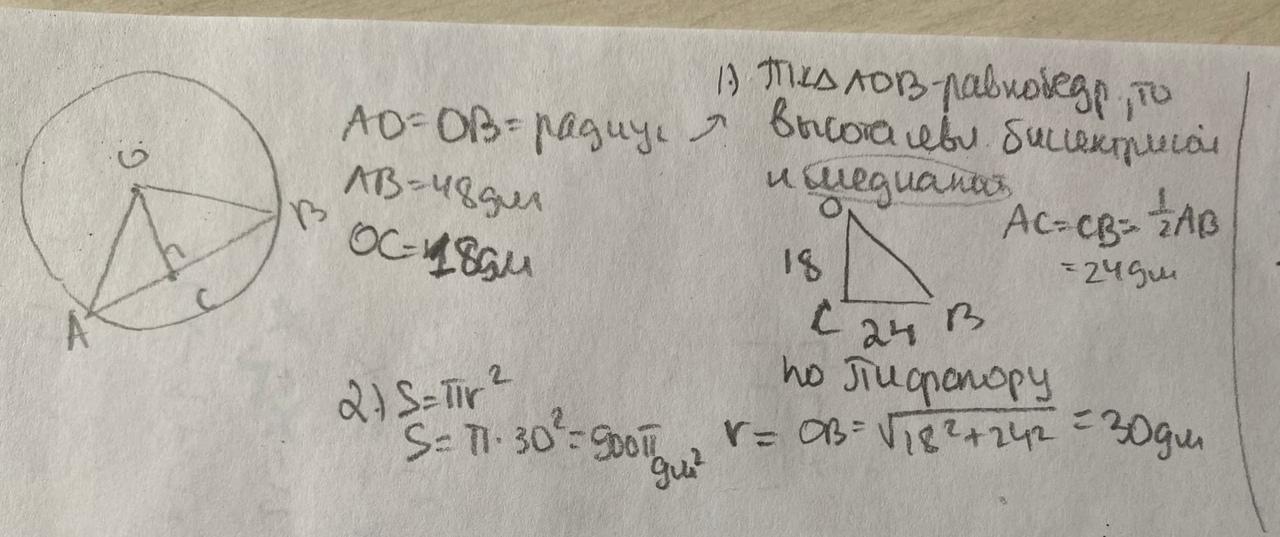 O
B
A
C
AO=OB=радиус ↗
AB=48дм
OC=18дм
1.) Т.к △AOB-равнобедр, то
высота явл. биссектрисой
и медианой
O
18
C 24 B
AC=CB=½AB
=24дм
по Пифагору
r = OB=√18²+24² =30дм
2.) S=πr²
S=π·30²=900π дм²